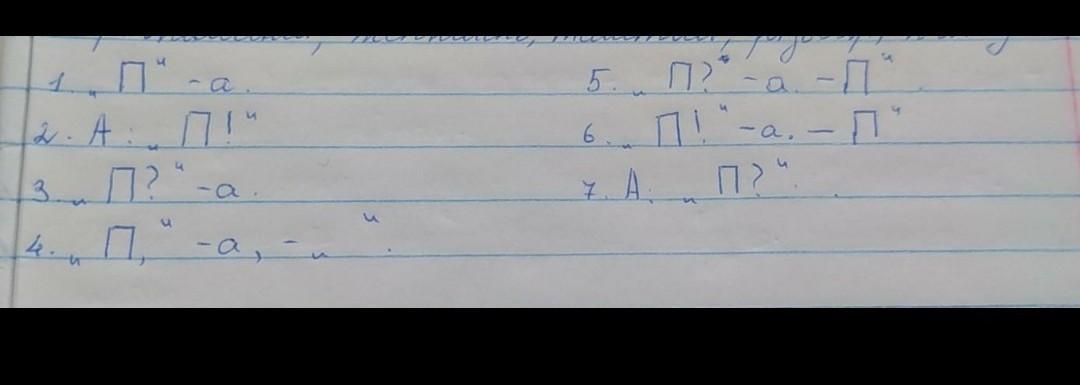 1. „П“ - а.
2. А: „П!“
3. „П?“ - а.
4. „П,“ - а, - „ “.
5. „П?“ - а. - П“
6. „П!“ - а. – П“
7. А: „П?“.